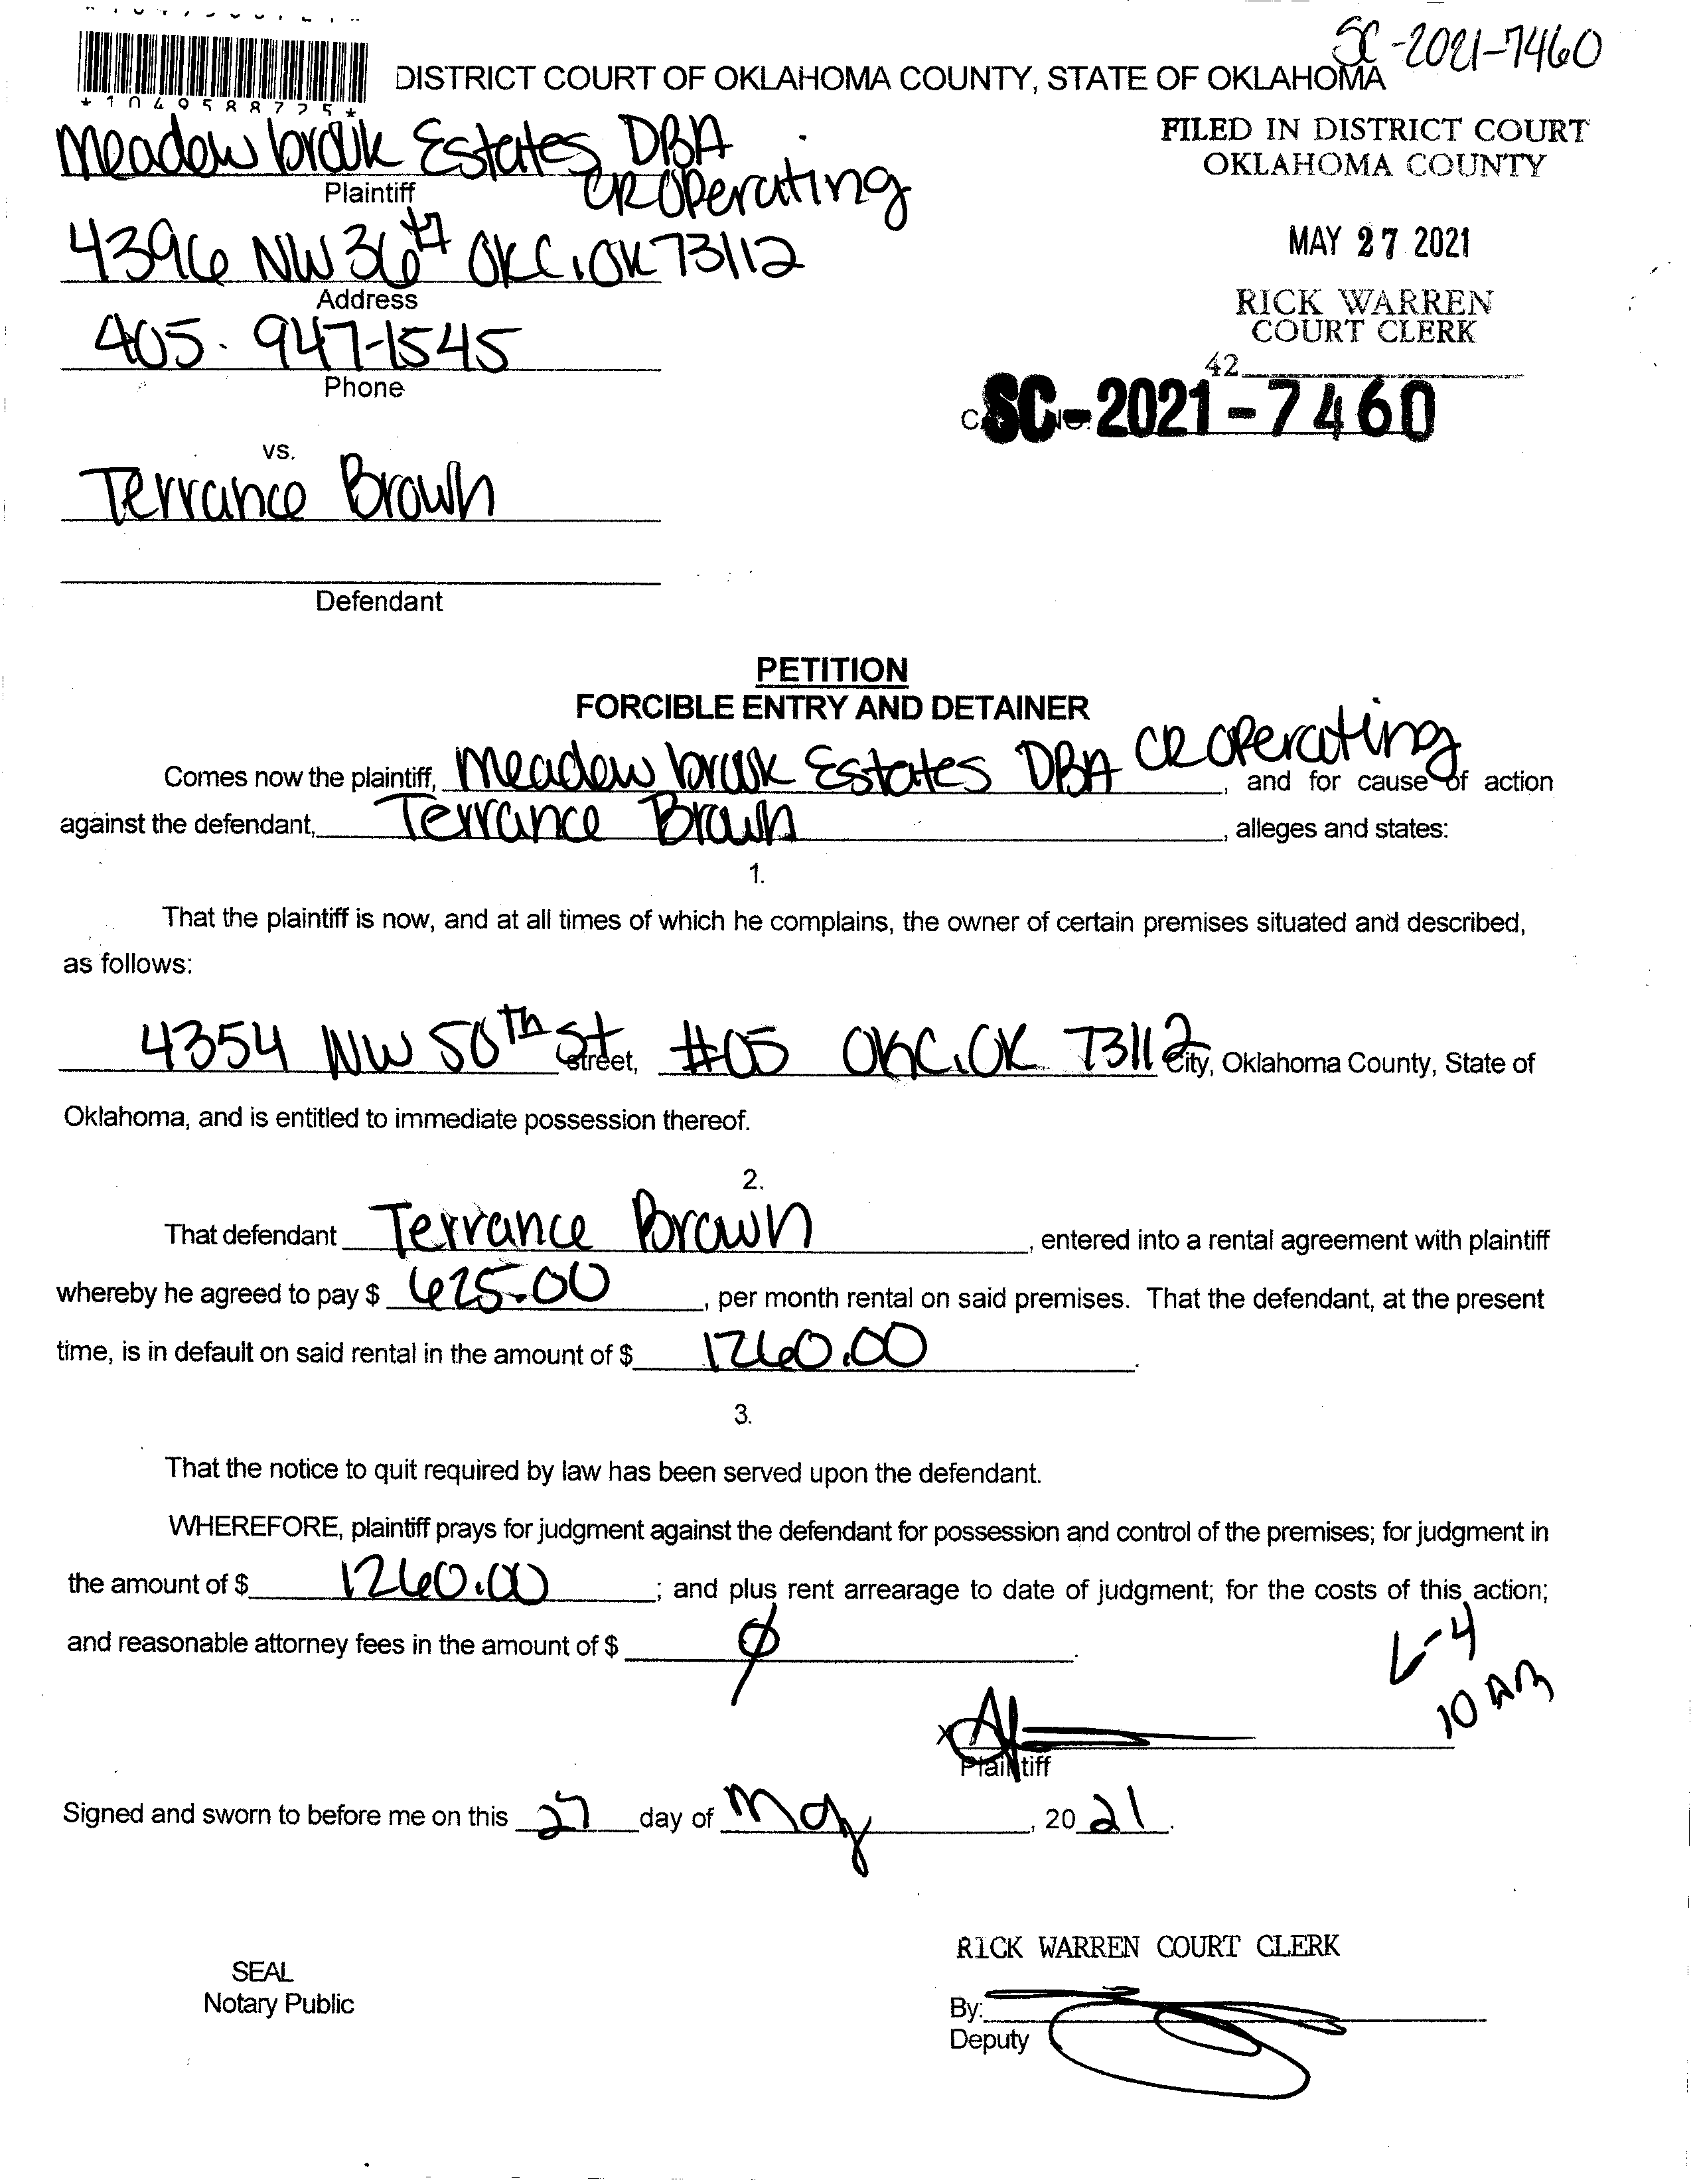 SC-2021-7460
*1049588725*
DISTRICT COURT OF OKLAHOMA COUNTY, STATE OF OKLAHOMA
Meadowbrook Estates DBA
CR Operating
Plaintiff
FILED IN DISTRICT COURT
OKLAHOMA COUNTY
4396 NW 36th OKC, OK 73112
Address
MAY 27 2021
405. 947-1545
Phone
RICK WARREN
COURT CLERK
42
SC-2021-7460
vs.
Terrance Brown
Defendant
PETITION
FORCIBLE ENTRY AND DETAINER
Comes now the plaintiff, Meadowbrook Estates DBA CR Operating, and for cause of action
against the defendant, Terrance Brown, alleges and states:
1.
That the plaintiff is now, and at all times of which he complains, the owner of certain premises situated and described,
as follows:
4354 NW 50th St Street, #05 OKC, OK 73112 City, Oklahoma County, State of
Oklahoma, and is entitled to immediate possession thereof.
2.
That defendant Terrance Brown, entered into a rental agreement with plaintiff
whereby he agreed to pay $ 625.00, per month rental on said premises. That the defendant, at the present
time, is in default on said rental in the amount of $ 1260.00.
3.
That the notice to quit required by law has been served upon the defendant.
WHEREFORE, plaintiff prays for judgment against the defendant for possession and control of the premises; for judgment in
the amount of $ 1260.00; and plus rent arrearage to date of judgment; for the costs of this action;
and reasonable attorney fees in the amount of $ ∅.
6-4
10 AM
X
Plaintiff
Signed and sworn to before me on this 27 day of May, 2021.
RICK WARREN COURT CLERK
SEAL
Notary Public
By:
Deputy